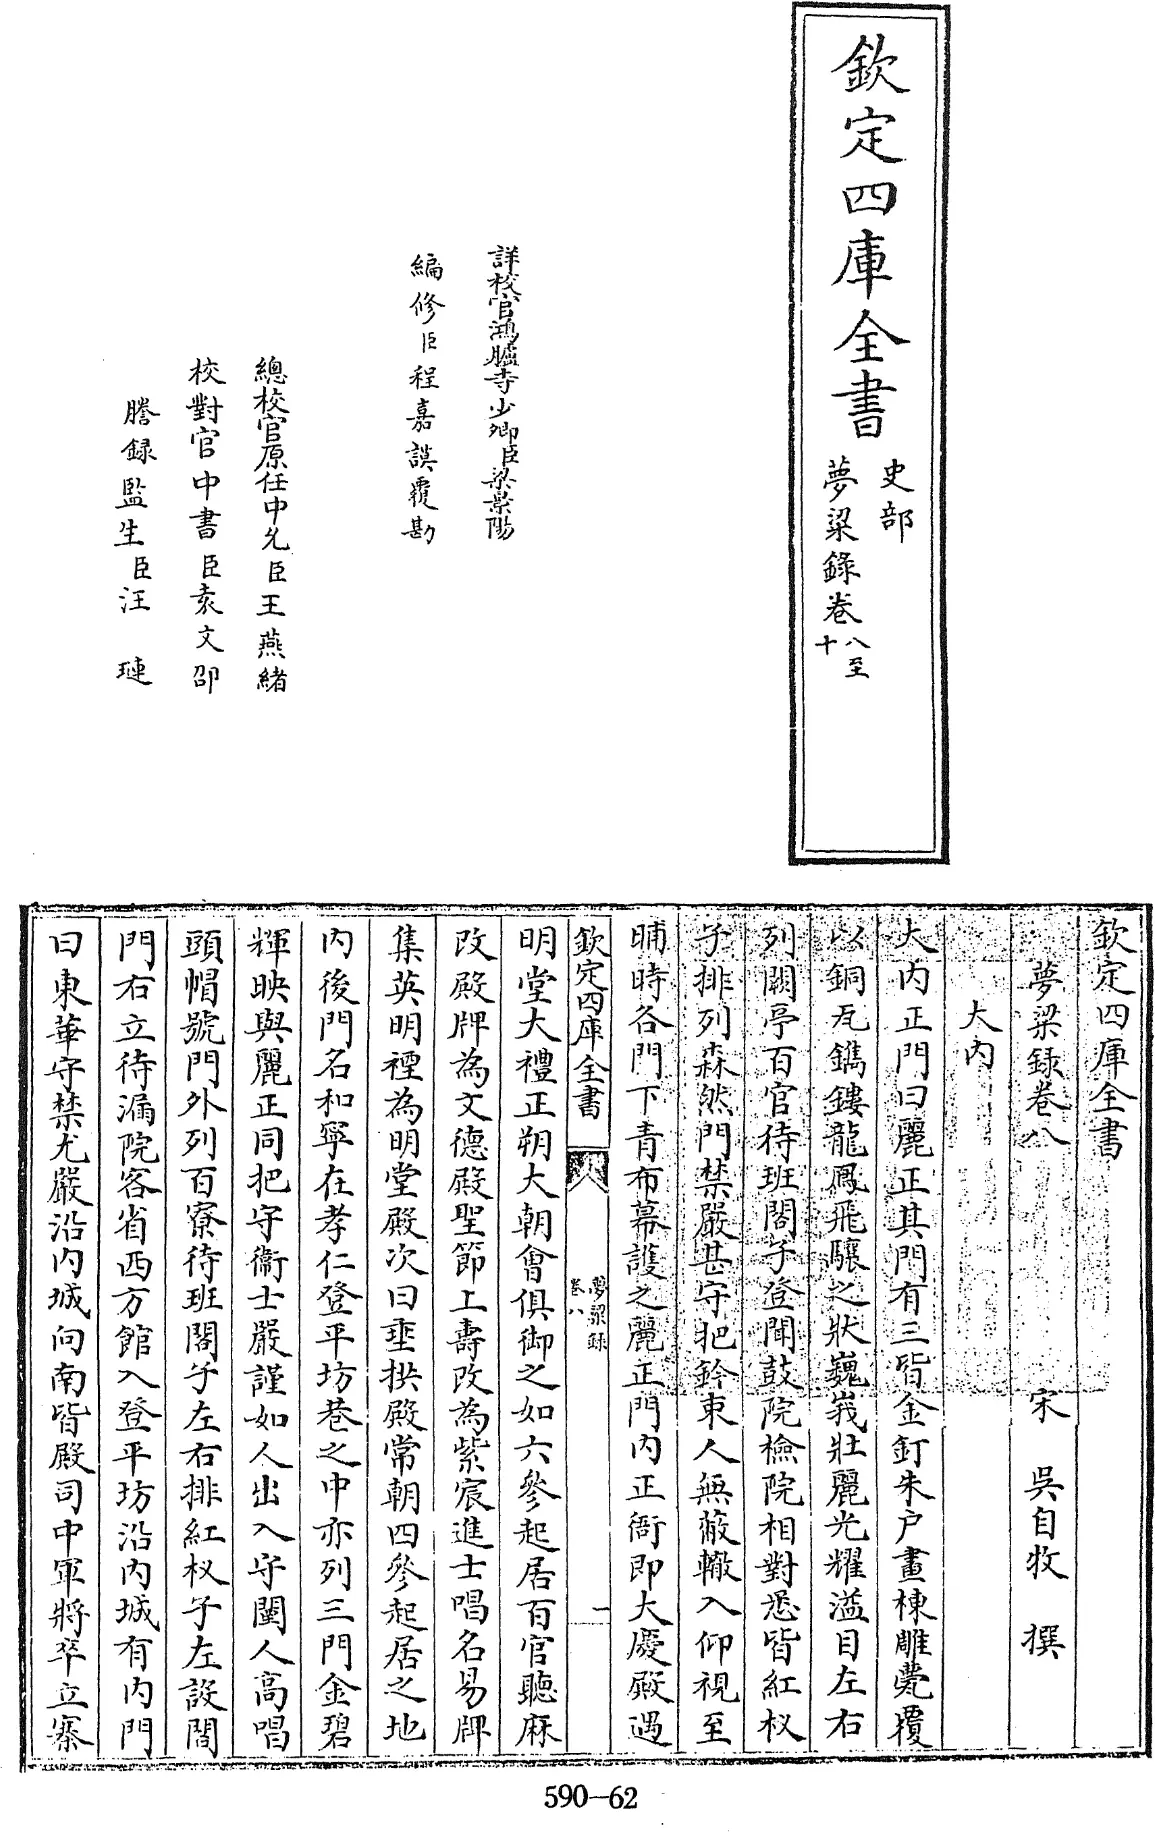 欽定四庫全書
史部
夢粱錄卷八至十
詳校官鴻臚寺少卿臣梁景陽
編修臣程嘉謨覆勘
總校官原任中允臣王燕緒
校對官中書臣袁文邵
謄録監生臣汪　璉
欽定四庫全書
夢粱録卷八
宋　吳自牧　撰
大内
大内正門曰麗正其門有三皆金釘朱户畫棟雕甍覆
以銅瓦鐫鏤龍鳳飛驤之狀巍峩壯麗光耀溢目左右
列闕亭百官待班閣子登聞鼓院檢院相對悉皆紅杈
子排列森然門禁嚴甚守把鈐束人無敢輙入仰視至
晡時各門下青布幕護之麗正門内正衙即大慶殿遇
欽定四庫全書
夢粱録
卷八
一
明堂大禮正朔大朝會俱御之如六參起居百官聽麻
改殿牌為文德殿聖節上壽改為紫宸進士唱名易牌
集英明禋為明堂殿次曰垂拱殿常朝四參起居之地
内後門名和寧在孝仁登平坊巷之中亦列三門金碧
輝映與麗正同把守衞士嚴謹如人出入守閽人高唱
頭帽號門外列百寮待班閣子左右排紅杈子左設閤
門右立待漏院客省西方館入登平坊沿内城有内門
曰東華守禁尤嚴沿内城向南皆殿司中軍將卒立寨
590—62